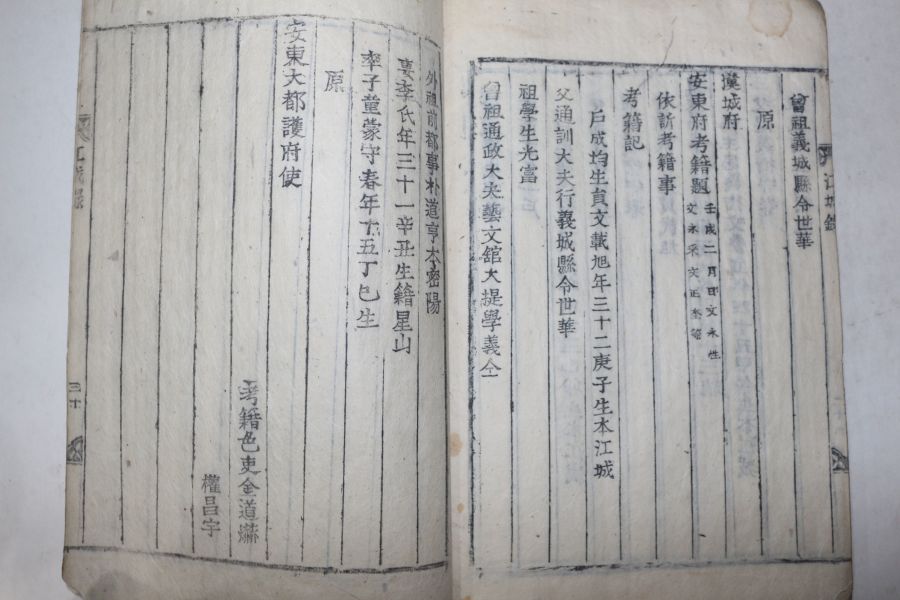 曾祖義城縣令世華
原
漢城府
安東府考籍題 壬戌二月日文永性
文永采文正奎等
依訴考籍事
考籍記
戶成均生員文載旭年三十二庚子生本江城
父通訓大夫行義城縣令世華
祖學生光富
曾祖通政大夫藝文舘大提學義仝
外祖前都事朴道亨本密陽
妻李氏年三十一辛丑生籍星山
率子童蒙守春年十五丁巳生
原
安東大都護府使
考籍色吏金道爀
權昌宇
江城錄
三十